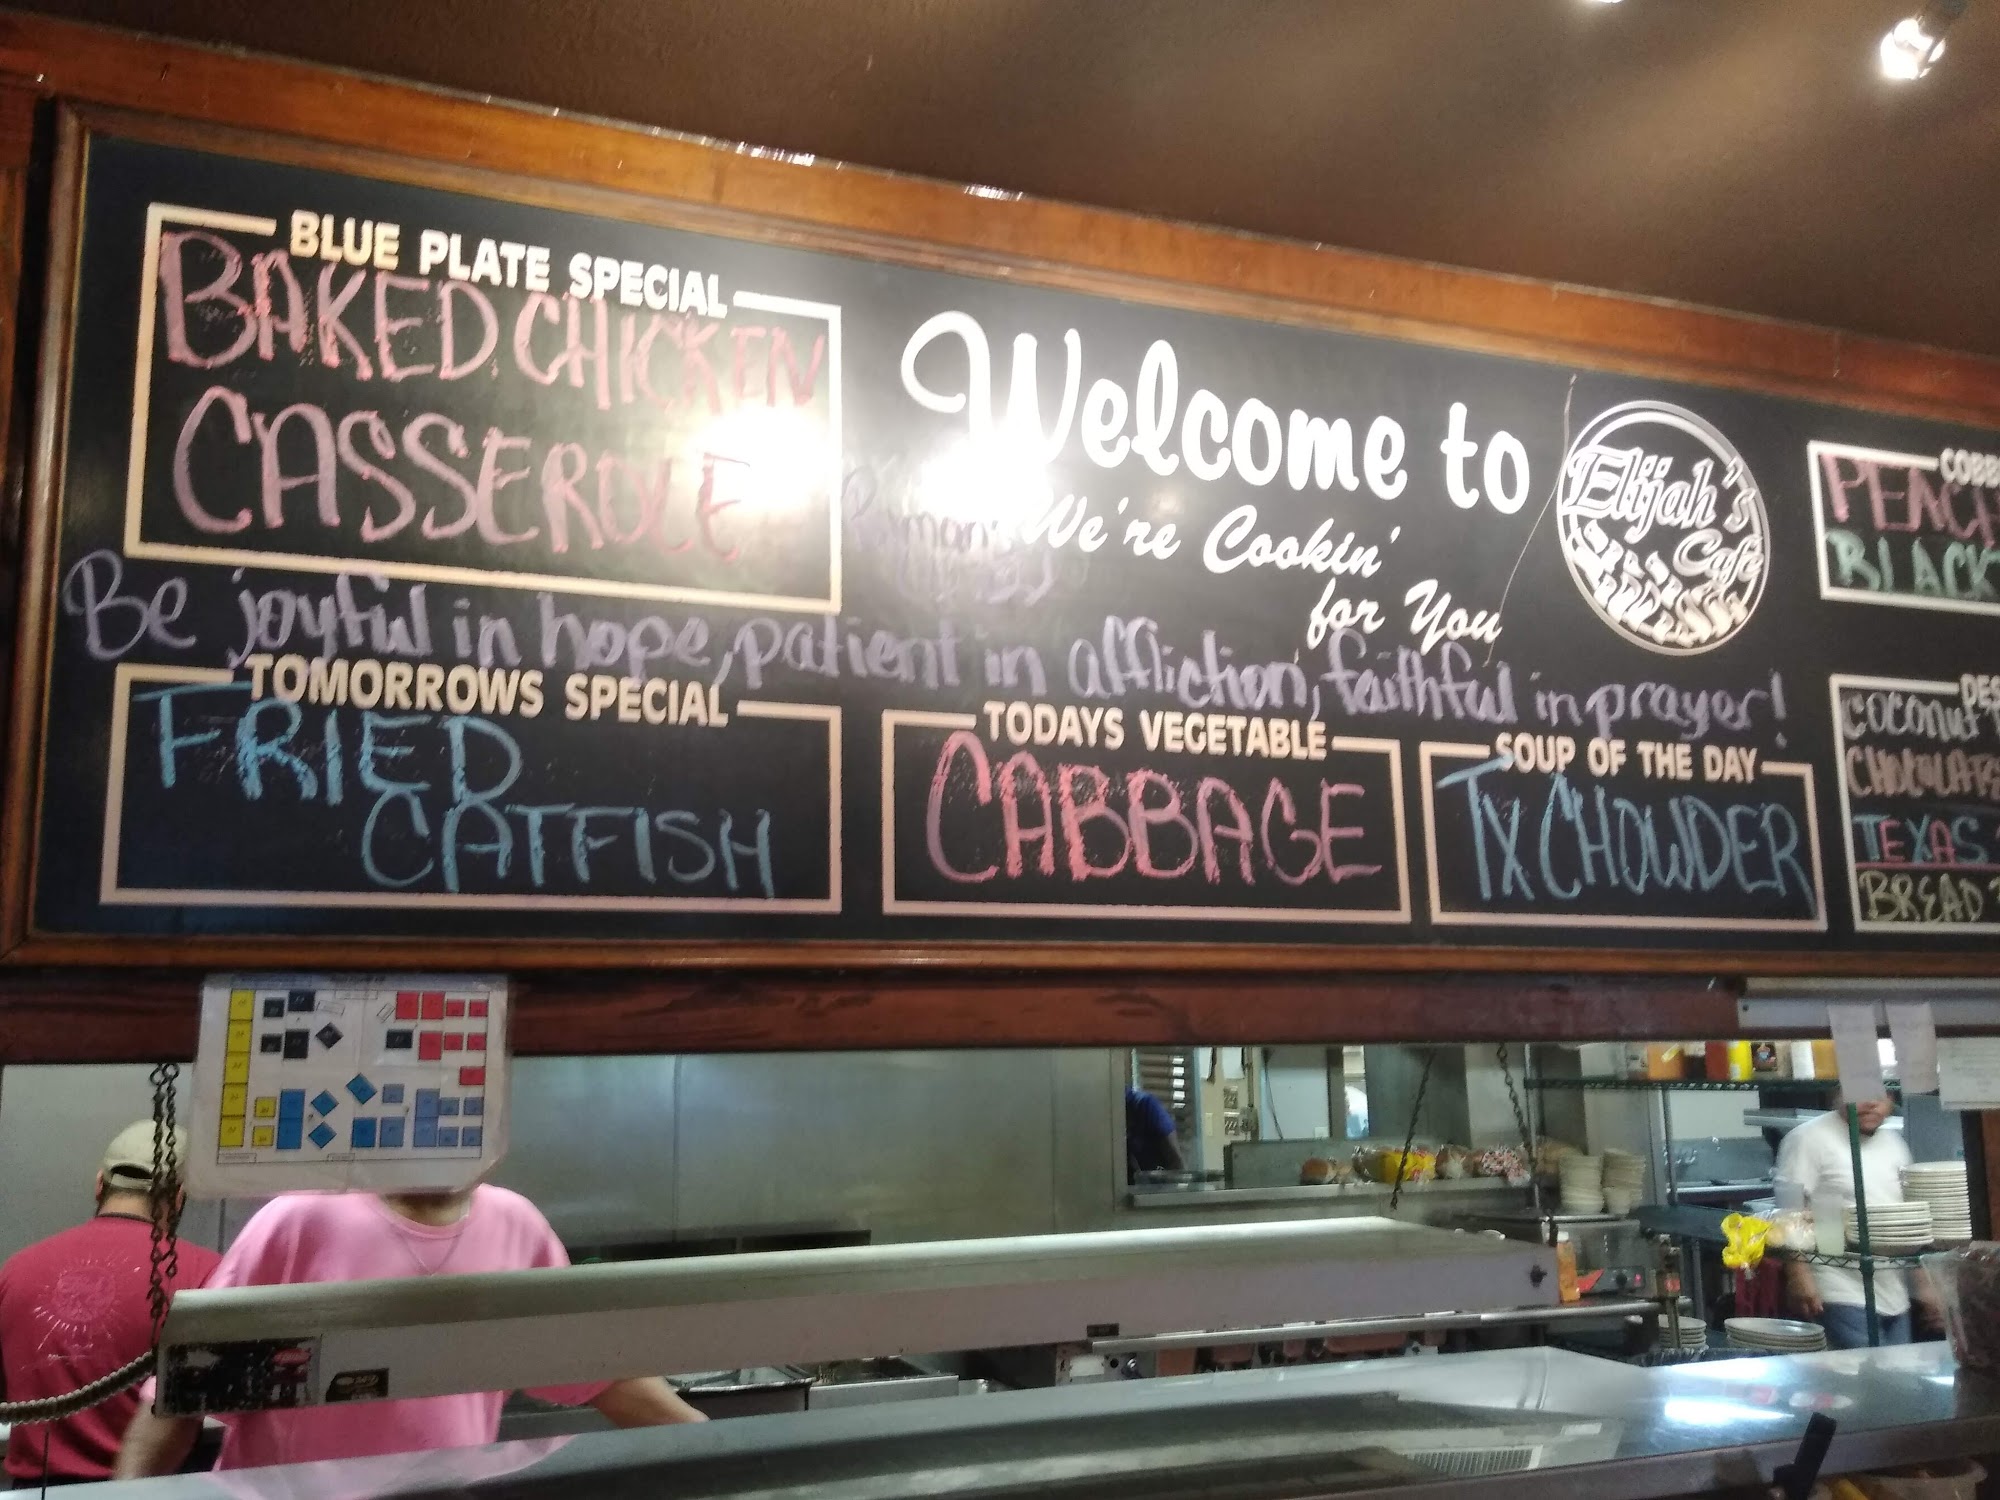 BLUE PLATE SPECIAL
BAKED CHICKEN
CASSEROLE
Welcome to
We're Cookin'
for You
Elijah's
Cafe
COBB
PEACH
BLACK
Be joyful in hope, patient in affliction, faithful in prayer!
TOMORROWS SPECIAL
FRIED
CATFISH
TODAYS VEGETABLE
CABBAGE
SOUP OF THE DAY
TX CHOWDER
DES
COCONUT
CHOCOLATE
TEXAS
BREAD